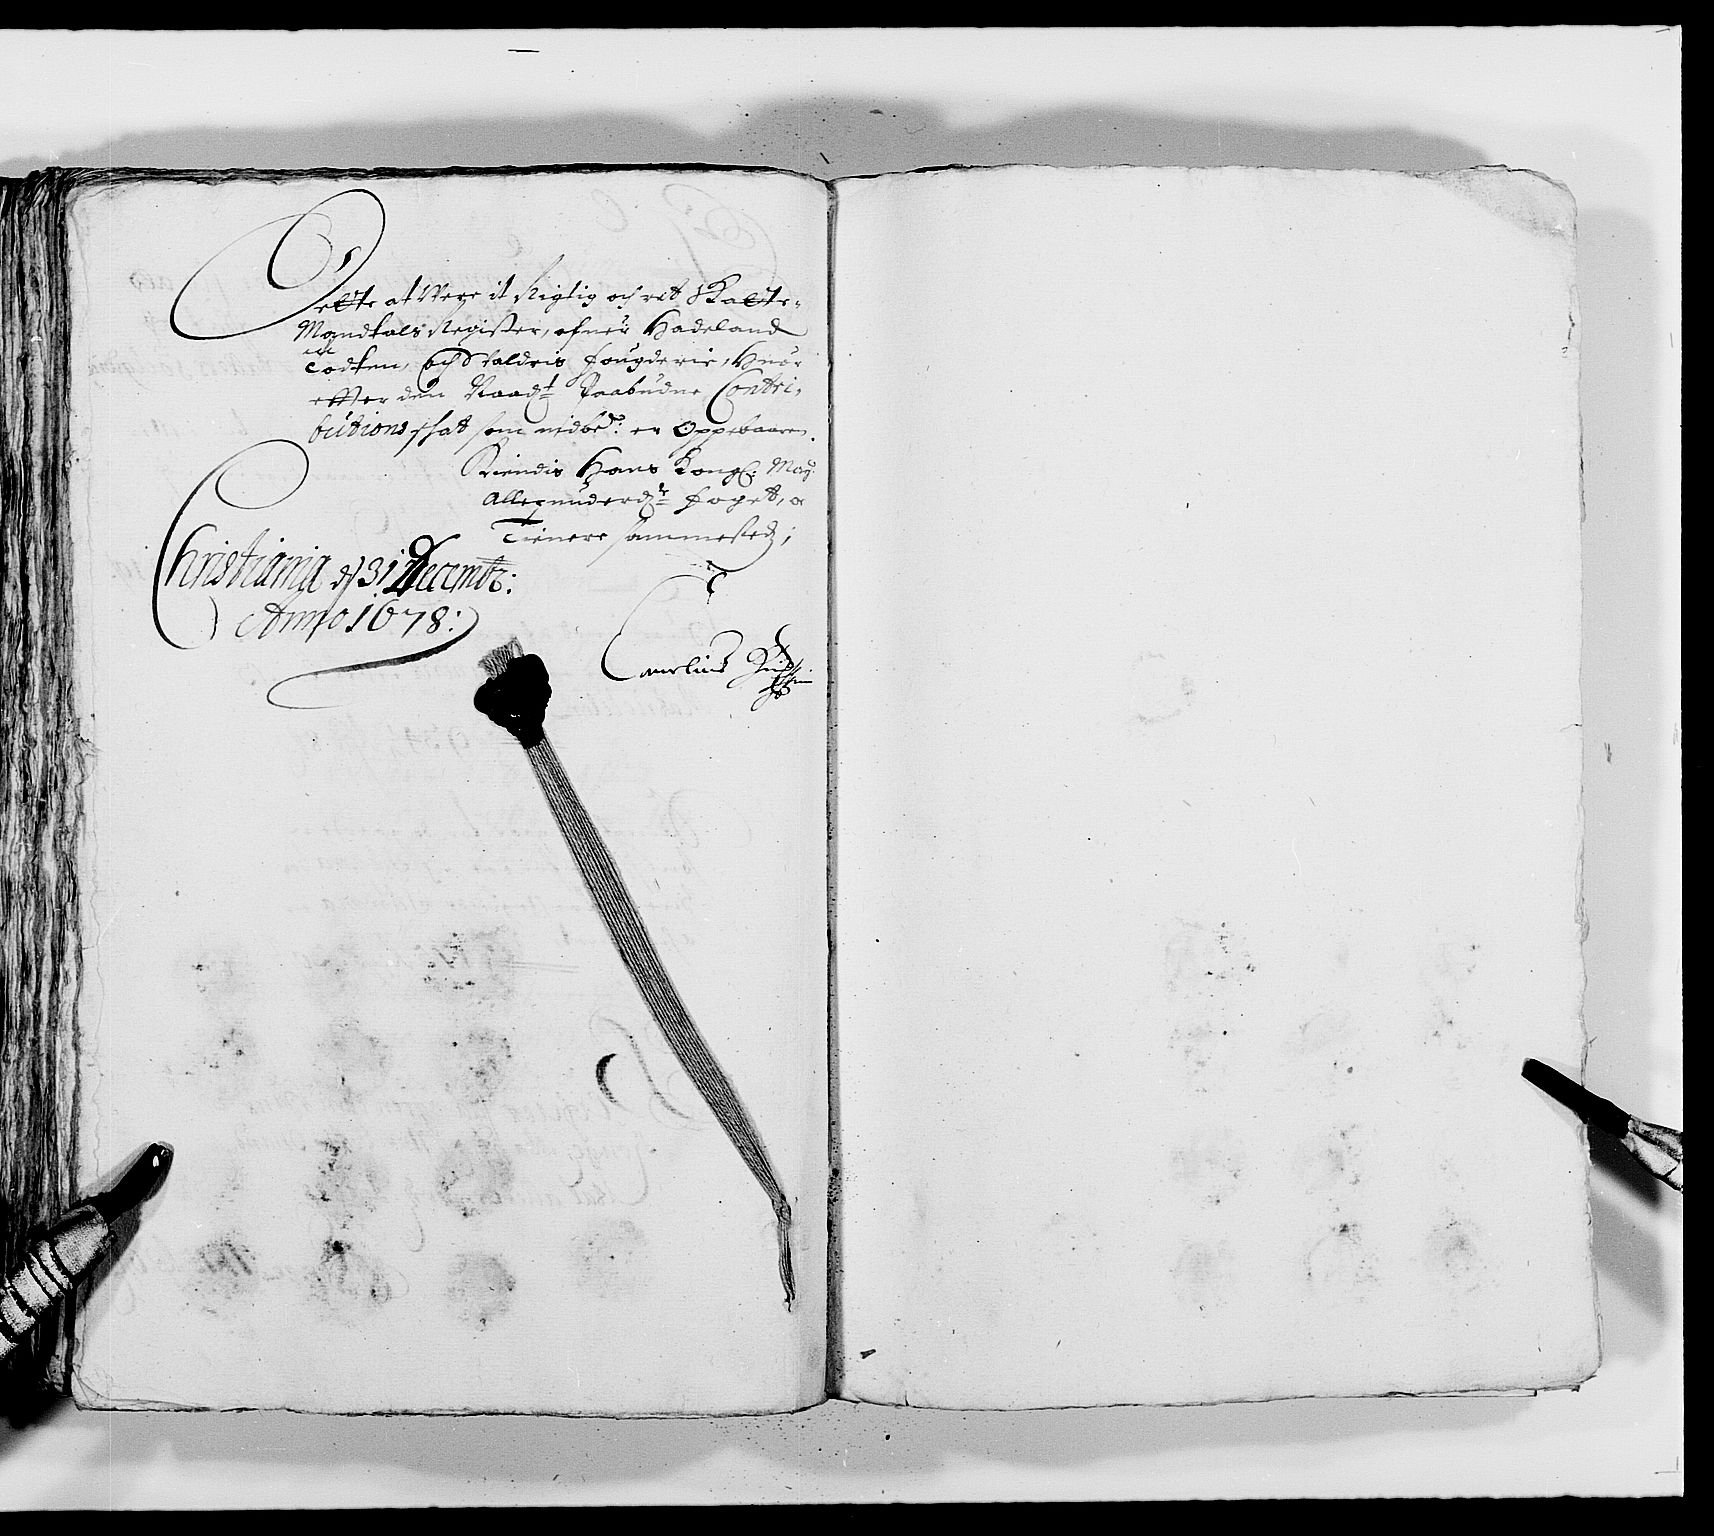 Dette at Were it Rigtig och ret Skatte-
Mandtals Register, ofuer Hadeland
Todten, och Valdris fougderie, Huor
effter den Naadst Paabudne Contri-
butions skat som vedbør: er Oppebaaren.
Kiendis Hans Kongl: May:
Allergnuderste foget, 
Tienere sammested;
Christiania d 31 Decembr:
Anno 1678:
Cornelius